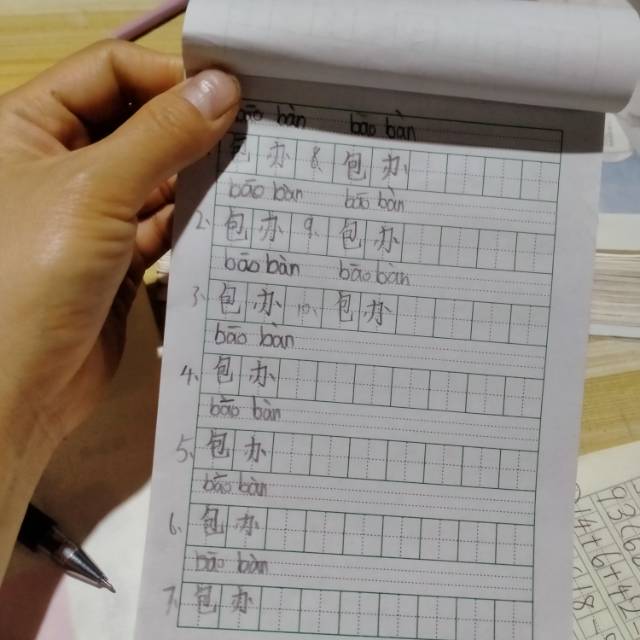 bāo bàn bāo bàn
包办 8、包办
bāo bàn bāo bàn
2、包办 9、包办
bāo bàn bāo bàn
3、包办 10、包办
bāo bàn
4、包办
bāo bàn
5、包办
bāo bàn
6、包办
bāo bàn
7、包办